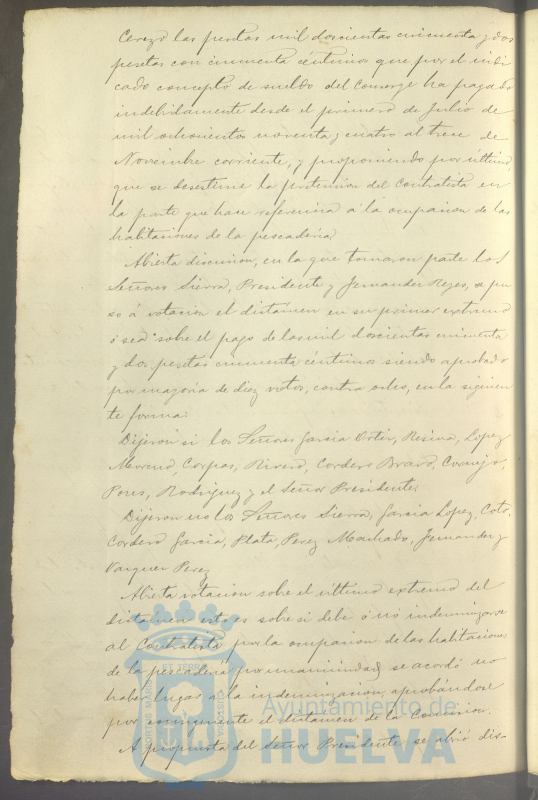 Cerezo las pesetas mil doscientas cincuenta y dos
pesetas con cincuenta céntimos que por el indi
cado concepto de sueldo del Conserge ha pagado
indebidamente desde el primero de Julio de
mil ochocientos noventa y cuatro al trece de
Noviembre corriente, y proponiendo por último,
que se desestime la pretension del Contratista en
la parte que hace referencia á la ocupacion de las
habitaciones de la pescadería.
Abierta discusion, en la que tomaron parte los
Señores Sierra, Presidente y Fernandez Reyes, se pu
so á votacion el dictámen en su primer extremo
ó sea sobre el pago de las mil doscientas cincuenta
y dos pesetas cincuenta céntimos siendo aprobado
por mayoría de diez votos, contra ocho, en la siguien
te forma:
Dijeron si los Señores Garcia Ortiz, Resina, Lopez
Moreno, Corpas, Rivero, Cordero Bravo, Cornejo,
Pons, Rodriguez y el Señor Presidente.
Dijeron no los Señores Sierra, Garcia Lopez, Coto,
Cordero Garcia, Plata, Perez Machado, Fernandez y
Vazquez Perez
Abierta votacion sobre el último extremo del
dictámen esto es sobre si debe ó nó indemnizarse
al Contratista por la ocupacion de las habitaciones
de la pescadería por unanimidad se acordó no
haber lugar a la indemnizacion, aprobándose
por consiguiente el dictámen de la Comision.
A propuesta del Señor Presidente se abrió dis-
PORTUS MARIS
ET TERRÆ
CUSTODIA
Ayuntamiento de
HUELVA